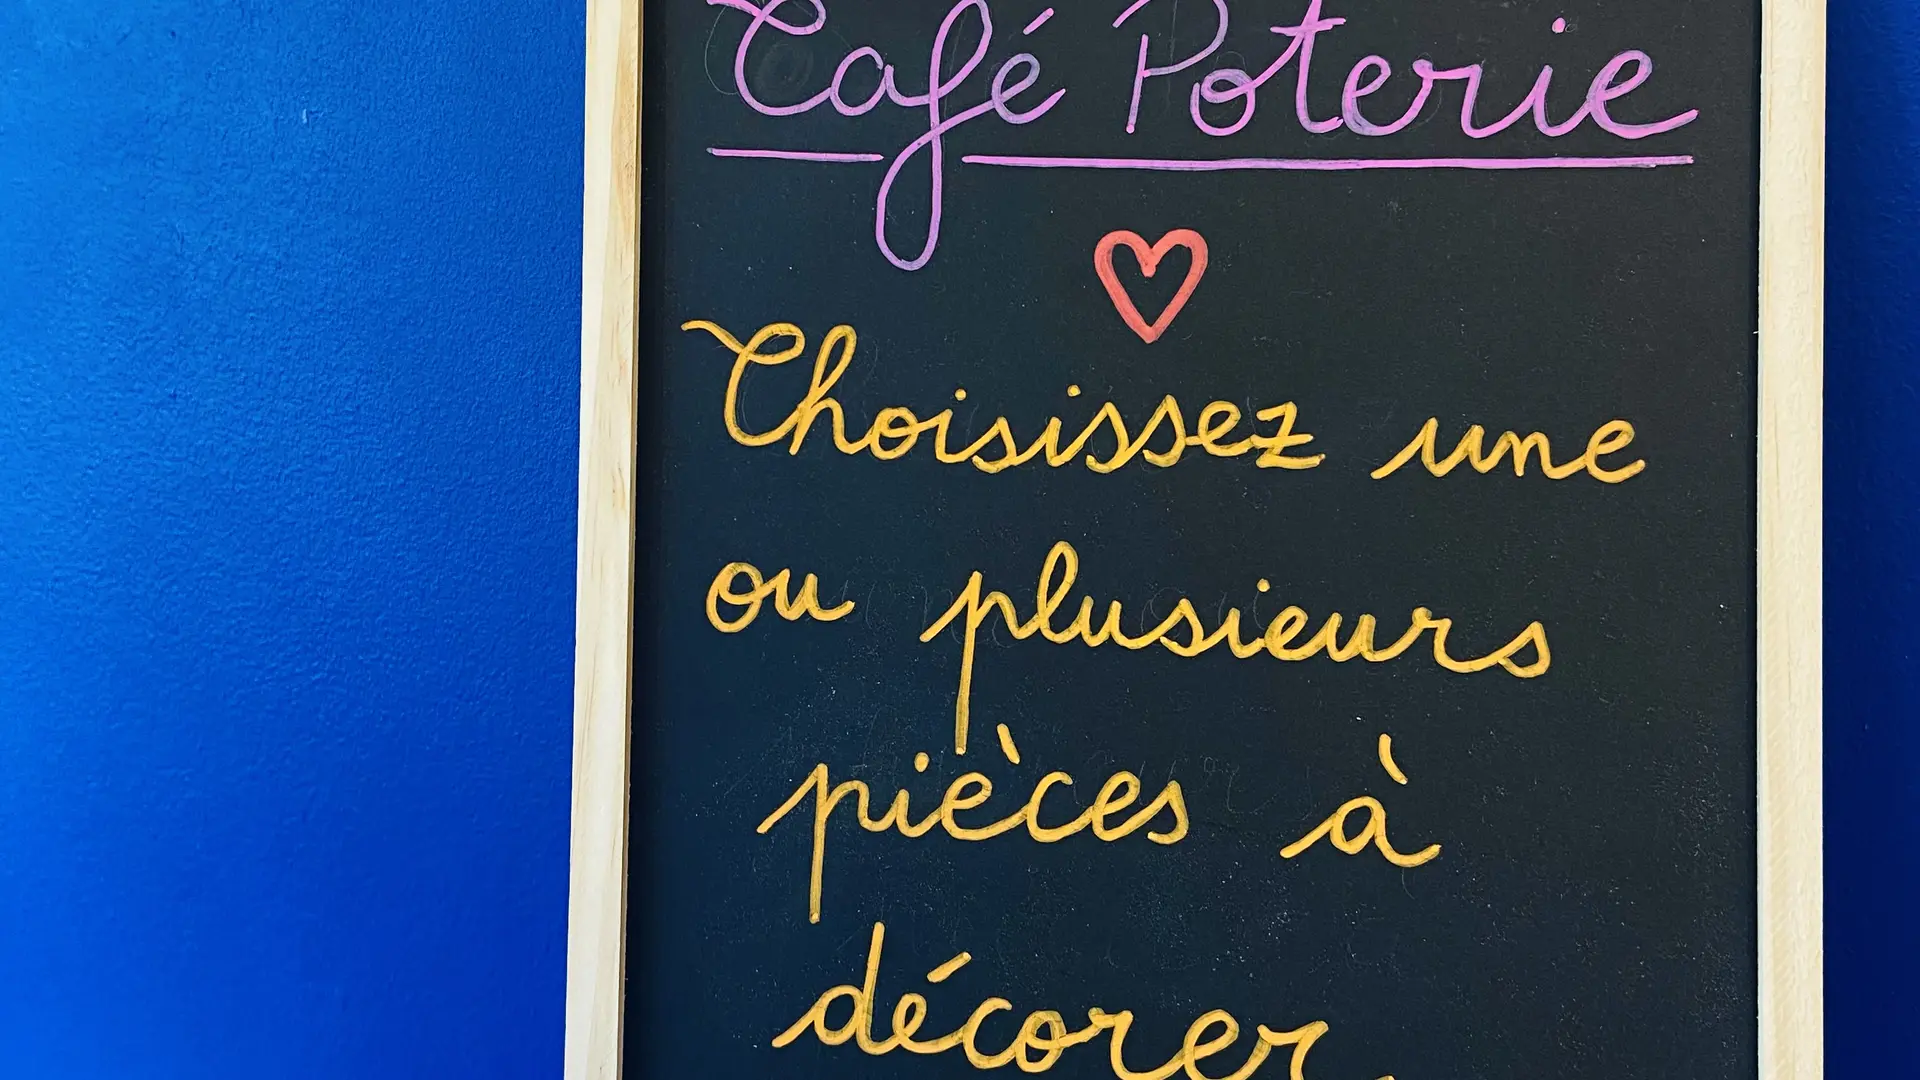 Café Poterie
Choisissez une
ou plusieurs
pièces à
décorer